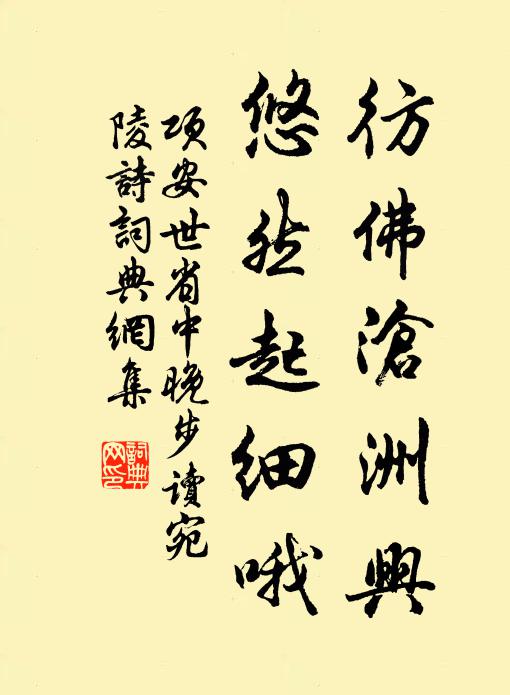 彷佛滄洲興
悠然起細哦
項安世省中晚步讀宛
陵詩詞典網集
詞典網印